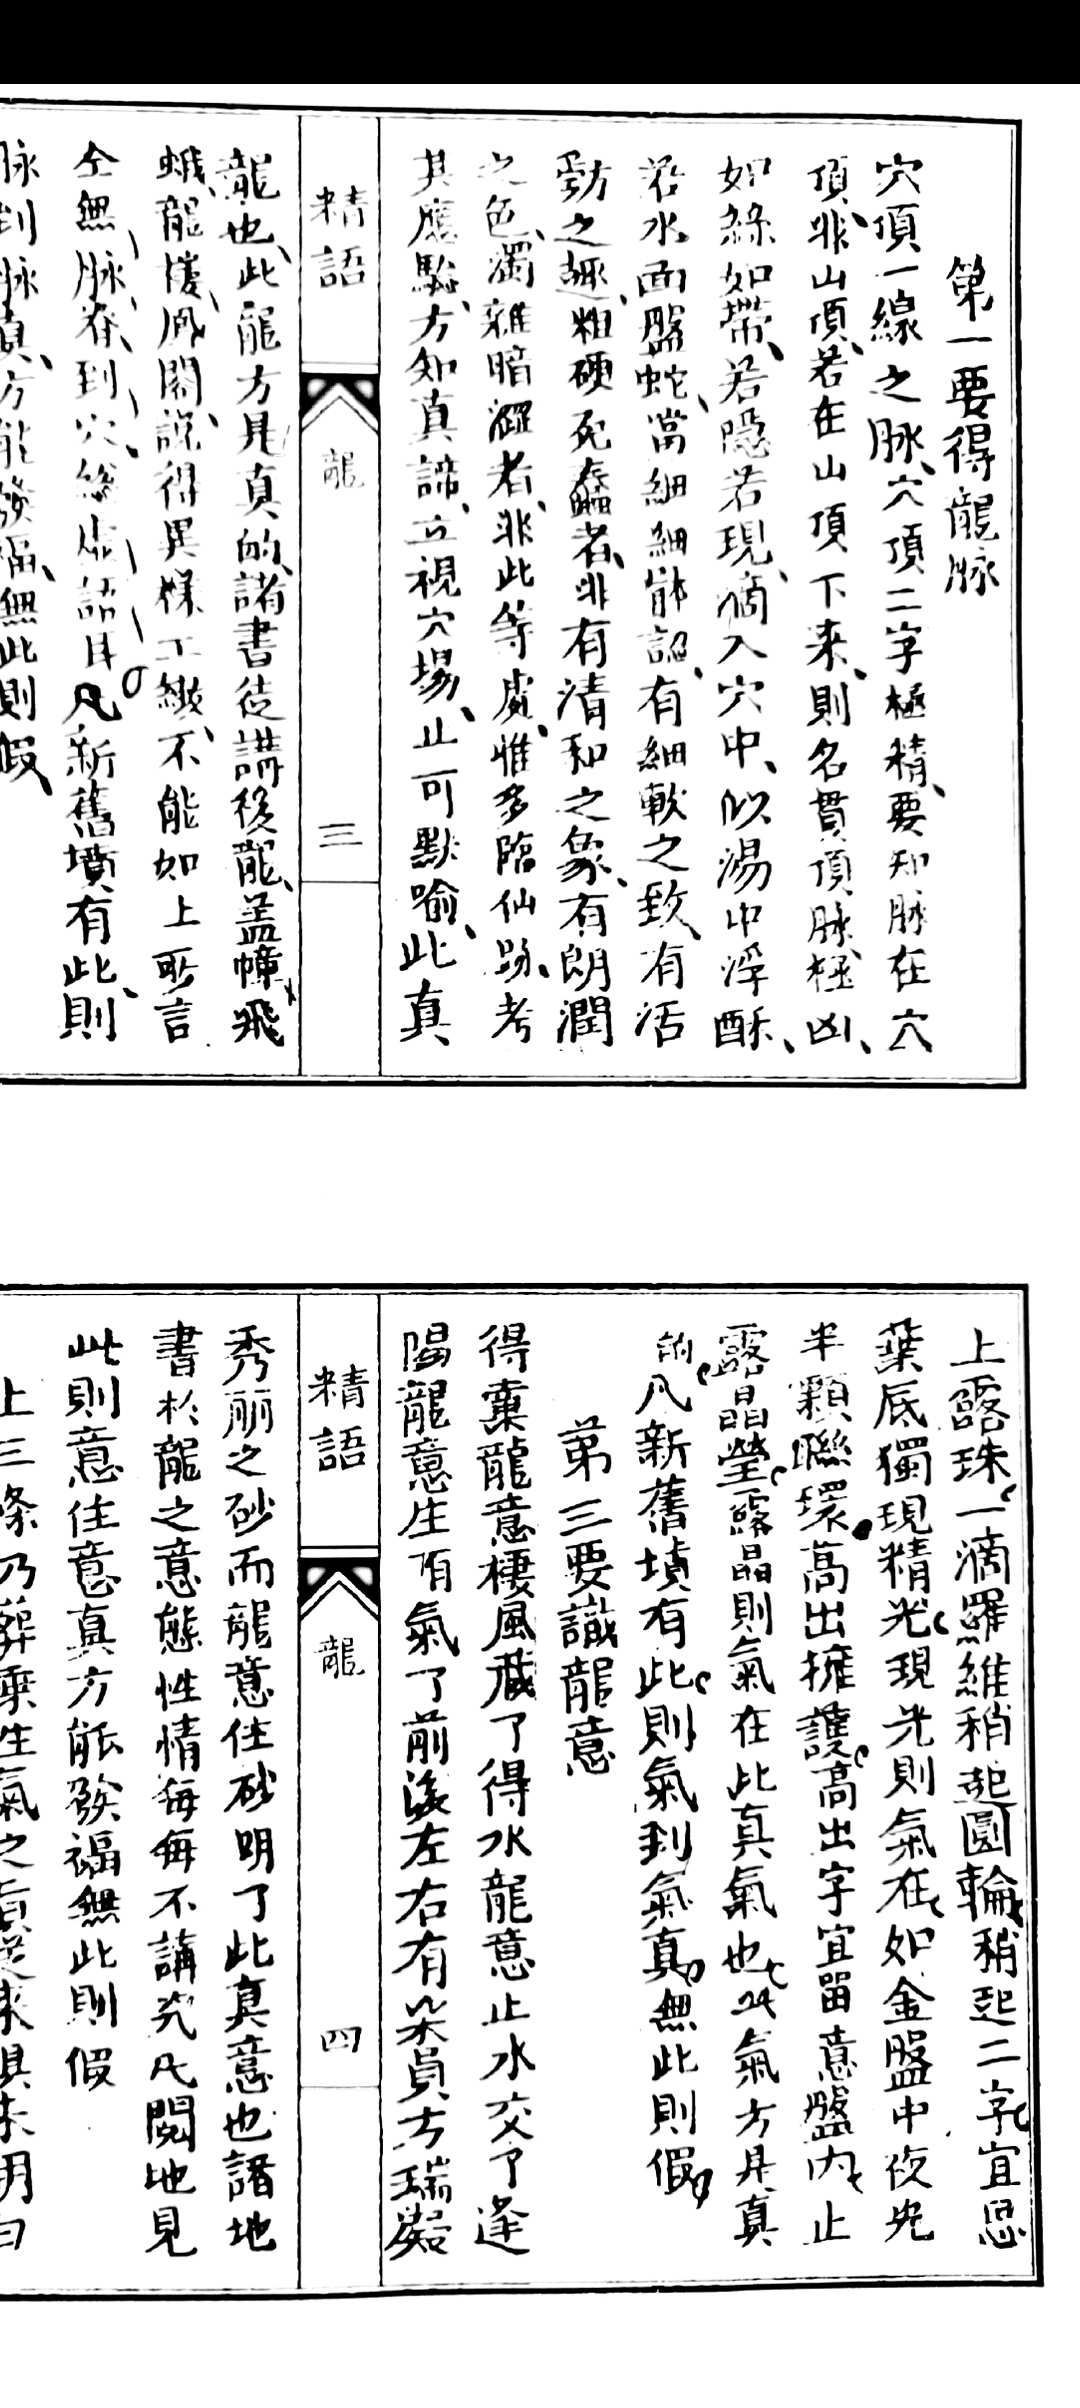 第一要得龍脉
穴頂一線之脉穴頂二字極精要知脉在穴
頂非山頂若在山頂下来則名貫頂脉極凶
如絲如带若隱若現滴入穴中似湯中浮酥
若水面盤蛇當細細辭認有細軟之致有活
動之趣粗硬死蠢者非有清和之象有朗潤
之色濁雜暗濕者非此等處惟多臨仙跡考
其應驗方知真諦立視穴場止可默喻此真
精語
龍
三
龍也此龍方是真的諸書徒講後龍盖幢飛
蛾龍樓鳳閣說得異樣工緻不能如上所言
全無脉脊到穴總虛話耳凡新舊墳有此則
脉到脉真方能發福無此則假
上露珠一滴羅維稍起圓輪稍起二字宜忌
葉底獨現精光現光則氣在如金盤中夜光
半顆聯環高出擁護高出字宜留意盤内止
露晶瑩露晶則氣在此真氣也此氣方是真
的凡新舊墳有此則氣到氣真無此則假
第三要識龍意
得窠龍意棲風藏了得水龍意止水交了逢
陽龍意生有氣了前後左右有朵員方瑞凝
精語
龍
四
秀丽之砂而龍意住砂明了此真意也諸地
書於龍之意態性情每每不講究凡閱地見
此則意住意真方能發福無此則假
上三條乃葬乘生氣之真從来俱未明白